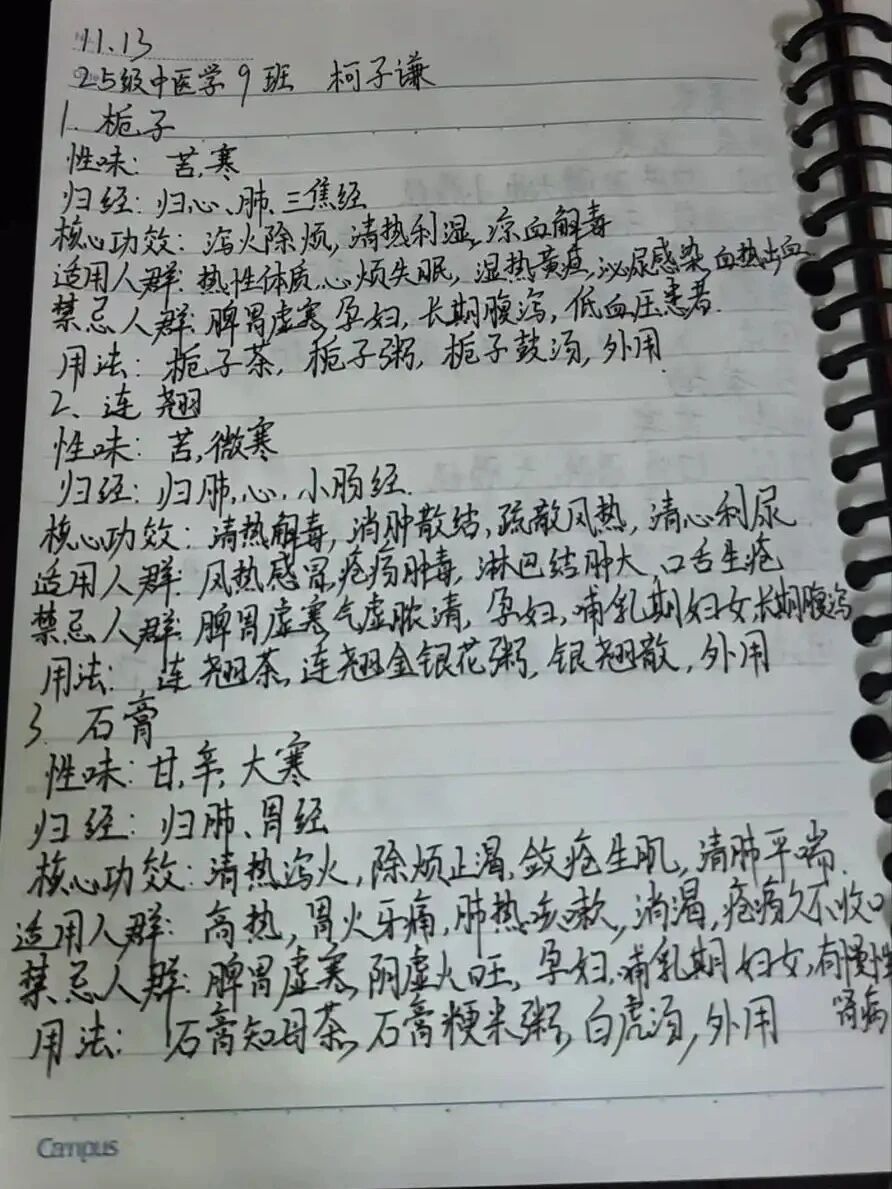 11.13
25级中医学9班 柯子谦
1. 栀子
性味：苦,寒
归经：归心、肺、三焦经
核心功效：泻火除烦,清热利湿,凉血解毒
适用人群：热性体质,心烦失眠,湿热黄疸,泌尿感染,血热出血
禁忌人群：脾胃虚寒,孕妇,长期腹泻,低血压患者.
用法：栀子茶,栀子粥,栀子鼓汤,外用
2、连翘
性味：苦,微寒
归经：归肺,心,小肠经.
核心功效：清热解毒,消肿散结,疏散风热,清心利尿
适用人群：风热感冒,疮疡肿毒,淋巴结肿大,口舌生疮
禁忌人群：脾胃虚寒,气虚脓清,孕妇,哺乳期妇女,长期腹泻
用法：连翘茶,连翘金银花粥,银翘散,外用
3. 石膏
性味：甘,辛,大寒
归经：归肺、胃经
核心功效：清热泻火,除烦止渴,敛疮生肌,清肺平喘.
适用人群：高热,胃火牙痛,肺热咳嗽,消渴,疮疡久不收口
禁忌人群：脾胃虚寒,阴虚火旺,孕妇,哺乳期妇女,有慢性
肾病
用法：石膏知母茶,石膏粳米粥,白虎汤,外用
Campus